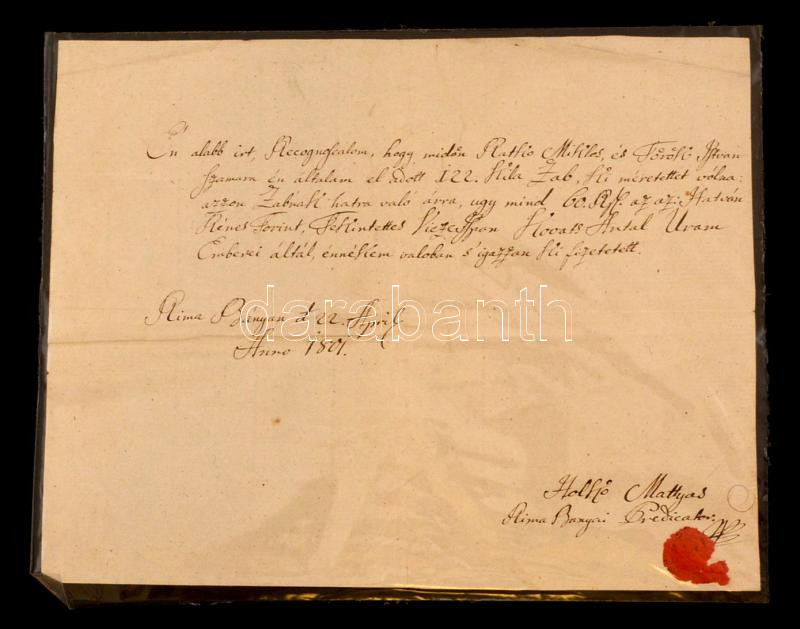 Én alabb irt, Recognoscalom, hogy midön Ratko Miklos, és Török Istvan
szamara én általam el adott 122. Kila Zab, ki méretettet vólna;
azzon Zabnak hatra való árra, ugy mind 60. Rf. az az: Hatván
Rénes Forint, Tekintettes Viczeispan Kovats Antal Uram
Emberei által, énnékem valoban s' igazzan ki fizetetett.
Rima Banyan d. 22. April
Anno 1801.
Holko Mattyas
Rima Banyai Predicator
darabanth